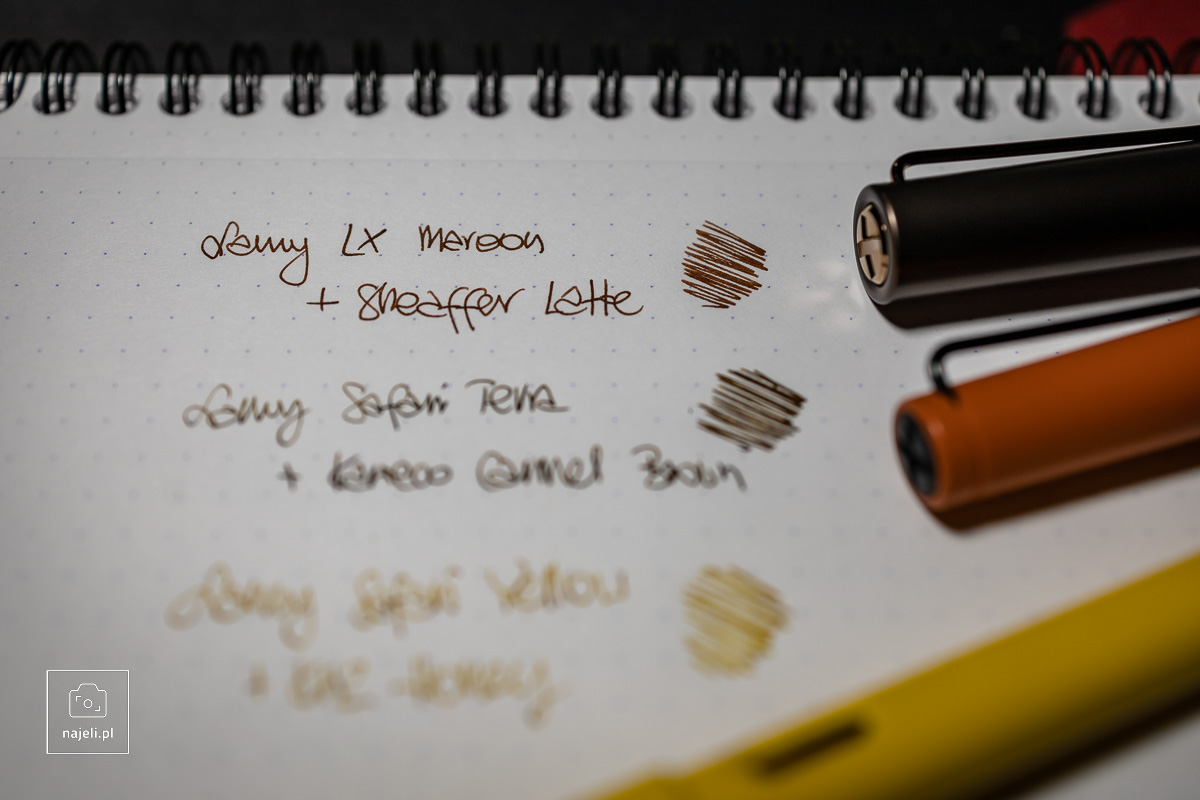 Lamy LX Maroon
+ Sheaffer Latte
Lamy Safari Terra
+ Kaweco Carmel Brown
Lamy Safari Yellow
+ Honey
najeli.pl